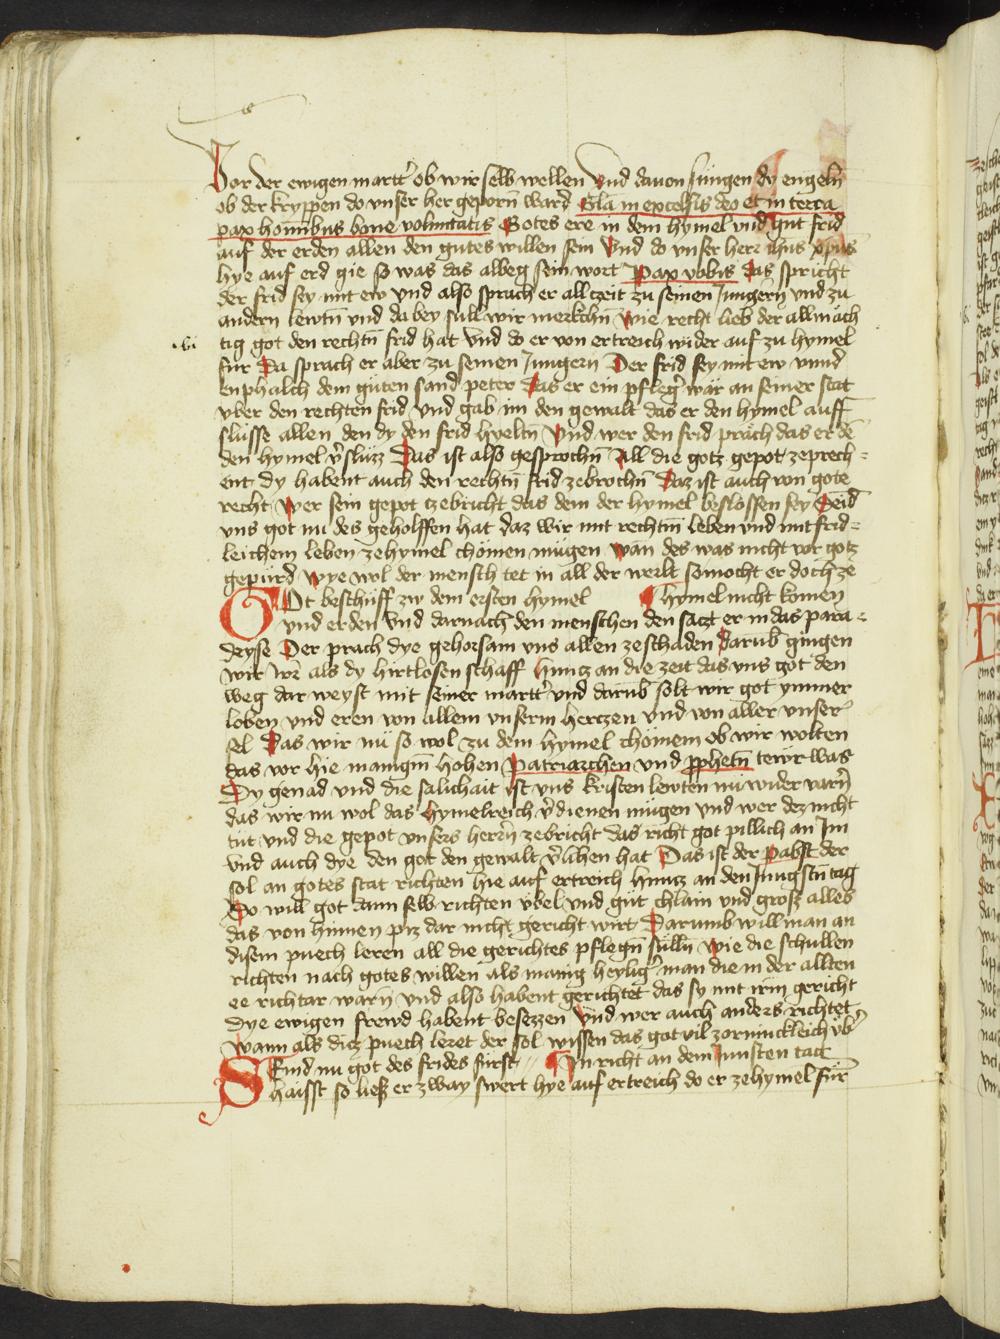 Vor der ewigen martt' ob wir selb wellen Vnd dauon sungen dy engeln̄
ob der kryppen do vnser her geporn̄ ward Gl̄a in excelsis deo et in terra
pax homībus bone volūntatis Gotes ere in dem hymel vnd gut frid
auf der erden allen den gutes willen sein Vnd do vnser herr ih̄us xp̄us
hye auf erd gie so was das albeg sein wort Pax vobis das spricht
der frid sey mit ew vnd also sprach er all czeit zu seinen Jungern vnd zu
andern lewtn̄ vnd da bey sull wir merckchn̄ wie recht lieb der allmäch
tig got den rechtn̄ frid hat Vnd do er von ertreich wider auf zu hymel
für Da sprach er aber zu seinen Jungern Der frid sey mit ew vnnd
enphalch dem guten sand peter das er ein pfleg' wär an seiner stat
vber den rechten frid vnd gab im den gewalt das er den hymel auff
slüsse allen den dy den frid hyeltn̄ Vnd wer den frid präch das er dē
den hymel v'slüzz Das ist also gesprochn̄ All die gotz gepot zeprech=
ent dy habent auch den rechtn̄ frid zebrochn̄ Daz ist auch von gote
recht wer sein gepot czebricht das dem der hymel beslossen sey Seid
vns got nu des geholffen hat daz wir mit rechtm̄ leben vnd mit frid=
leichem leben zehymel chömen mügen wan des was nicht vor gotz
gepürd wye wol der mensch tet in all der werlt so mocht er doch ze
Got beschüff zw dem ersten hymel ¶ hymel nicht komen
vnd erden vnd darnach den menschen den saczt er in das para=
deyse Der prach dye gehorsam vns allen zeschaden darub gingen
wir irr als dy hirtlosen schaff huncz an die zeit das vns got den
weg dar weyst mit seiner martt' vnd darūb solt wir got ymmer
loben vnd eren von allem vnserm herczen vnd von aller vnser
sel Das wir nū so wol zu dem hymel chömem ob wir wolten
das vor hie manigm̄ hohen Patriarchen vnd pphetn̄ tewr was
Dy genad vnd die sälichait ist vns kristen lewten nu wider varn̄
das wir nu wol das hymelreich v'dienen mügen vnd wer dez nicht
tüt vnd die gepot vnsers herrn̄ zebricht das richt got pillich an Im
vnd auch dye den got den gewalt v'lihen hat Das ist der Pabst der
sol an gotes stat richten hie auf ertreich huncz an den Jungstn̄ tag
So will got dann selb richten vbel vnd güt chlain vnd grosz alles
das von hinnen piz dar nicht gericht wirt Darumb will man an
disem puech leren all die gerichtes pflegn̄ sülln̄ wie die schullen
richten nach gotes willen als manig heylig' man die in der allten
ee richtar warn̄ vnd also habent gerichtet das sy mit irm̄ gericht
dye ewigen frewd habent besezzen Vnd wer auch anders richtet
wann als dicz puech leret der sol wissen das got vil zorniuckleich vb'
Seind nu got des frides fürst ¶ In richt an dem Junsten tag
haisst so liesz er zway swert hye auf ertreich do er zehymel für